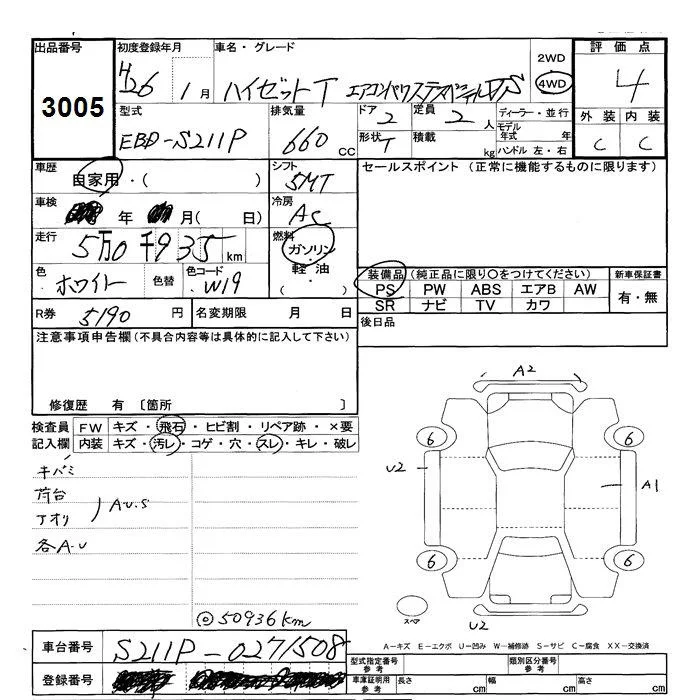 出品番号 初度登録年月 車名・グレード 2WD 評価点
3005 H26 1月 ハイゼットT エアコンパワステスペシャル 4WD 4
型式 排気量 ドア 2 定員 2人 ディーラー・並行 外装 内装
EBD-S211P 660 cc 形状 T 積載 kg モデル年式 年 C C
ハンドル 左・右
車歴 シフト セールスポイント (正常に機能するものに限ります)
自家用・( ) 5MT
車検 冷房
年 月( 日) AC
走行 燃料
5万0千935 km ガソリン・軽油
( ・ )
色 色替 色コード 装備品 (純正品に限り○をつけてください) 新車保証書
ホワイト W19 PS PW ABS エアB AW 有・無
SR ナビ TV カワ
R券 5190 円 名変期限 月 日 後日品
注意事項申告欄(不具合内容等は具体的に記入して下さい)
修復歴 有 〔箇所 〕
検査員 FW キズ・飛石・ヒビ割・リペア跡・×要
記入欄 内装 キズ・汚レ・コゲ・穴・スレ・キレ・破レ
キバミ
荷台
アオリ ) A.U.S
各A-U
◎50936km
A2
6 6
U2 A1
6 6
スペア U2
A-キズ E-エクボ U-凹み W-補修跡 S-サビ C-腐食 XX-交換済
車台番号 S211P-0271508 型式指定番号 参考 類別区分番号 参考
登録番号 車庫証明用 参考 長さ cm 幅 cm 高さ cm